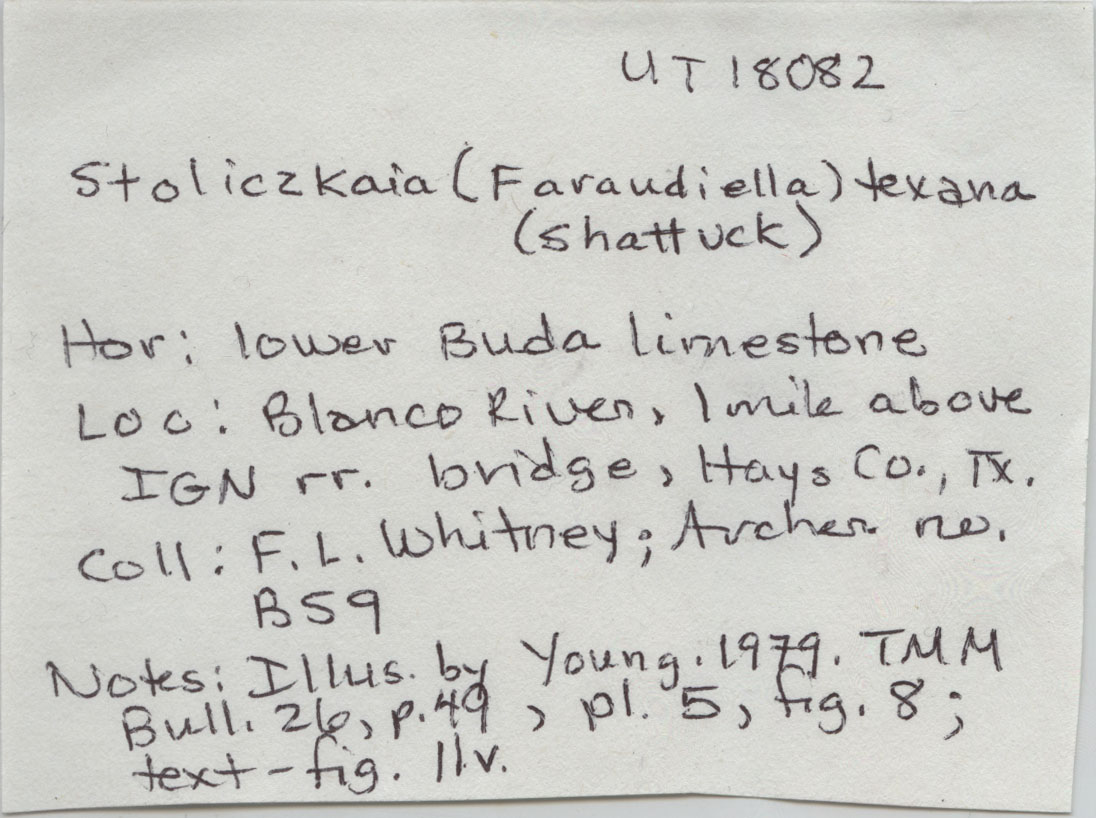 UT18082
Stoliczkaia (Faraudiella) texana
(Shattuck)
Hor: lower Buda limestone
Loc: Blanco River, 1 mile above
IGN rr. bridge, Hays Co., Tx.
Coll: F. L. Whitney; Archer no.
B59
Notes: Illus. by Young. 1979. TMM
Bull. 26, p. 49, pl. 5, fig. 8;
text-fig. 11v.